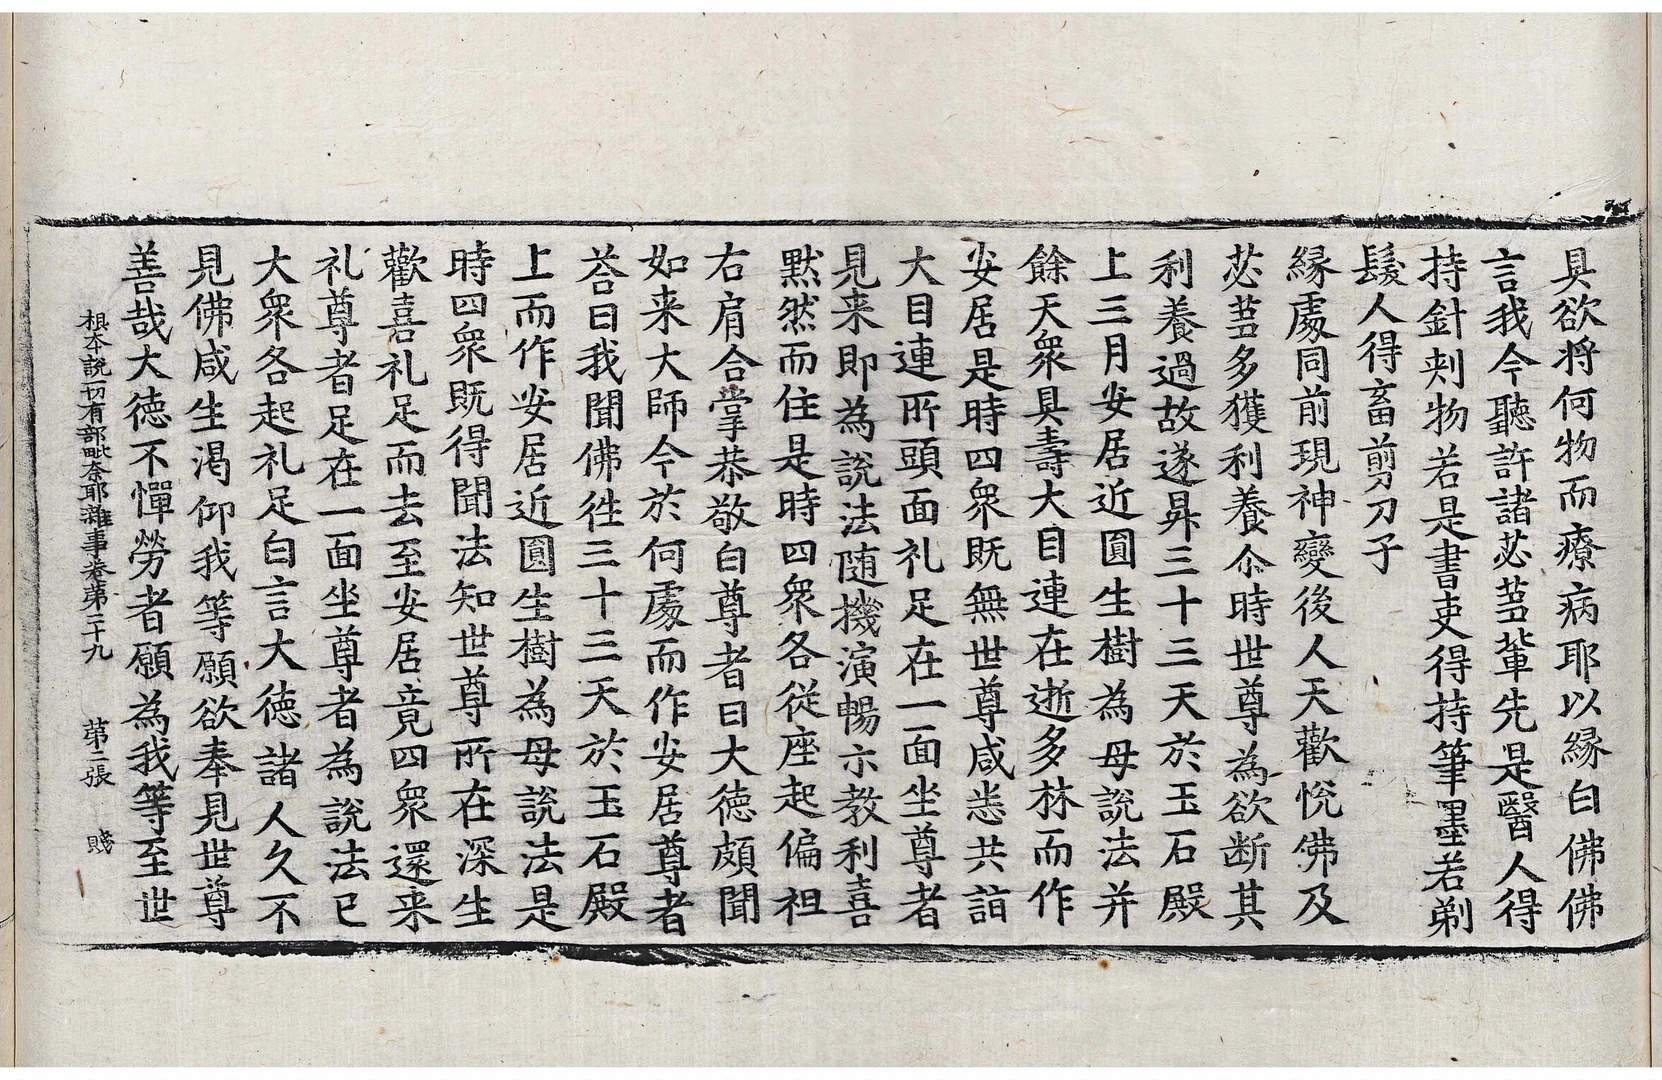 具欲将何物而療病耶以縁白佛佛
言我今聽許諸苾芻軰先是醫人得
持針刾物若是書吏得持筆墨若剃
髮人得畜剪刀子
縁處同前現神變後人天歡悅佛及
苾芻多獲利養尒時世尊為欲断其
利養過故遂昇三十三天於玉石殿
上三月安居近圓生樹為母說法并
餘天衆具壽大目連在逝多林而作
安居是時四衆既無世尊咸悉共詣
大目連所頭面礼足在一面坐尊者
見来即為說法随機演暢示教利喜
黙然而住是時四衆各從座起偏袒
右肩合掌恭敬白尊者曰大德頗聞
如来大師今於何處而作安居尊者
荅曰我聞佛徃三十三天於玉石殿
上而作安居近圓生樹為母說法是
時四衆既得聞法知世尊所在深生
歡喜礼足而去至安居竟四衆還来
礼尊者足在一面坐尊者為說法已
大衆各起礼足白言大德諸人久不
見佛咸生渴仰我等願欲奉見世尊
善哉大德不憚勞者願為我等至世
根本說一切有部毗奈耶雜事卷第二十九 苐二張 賤